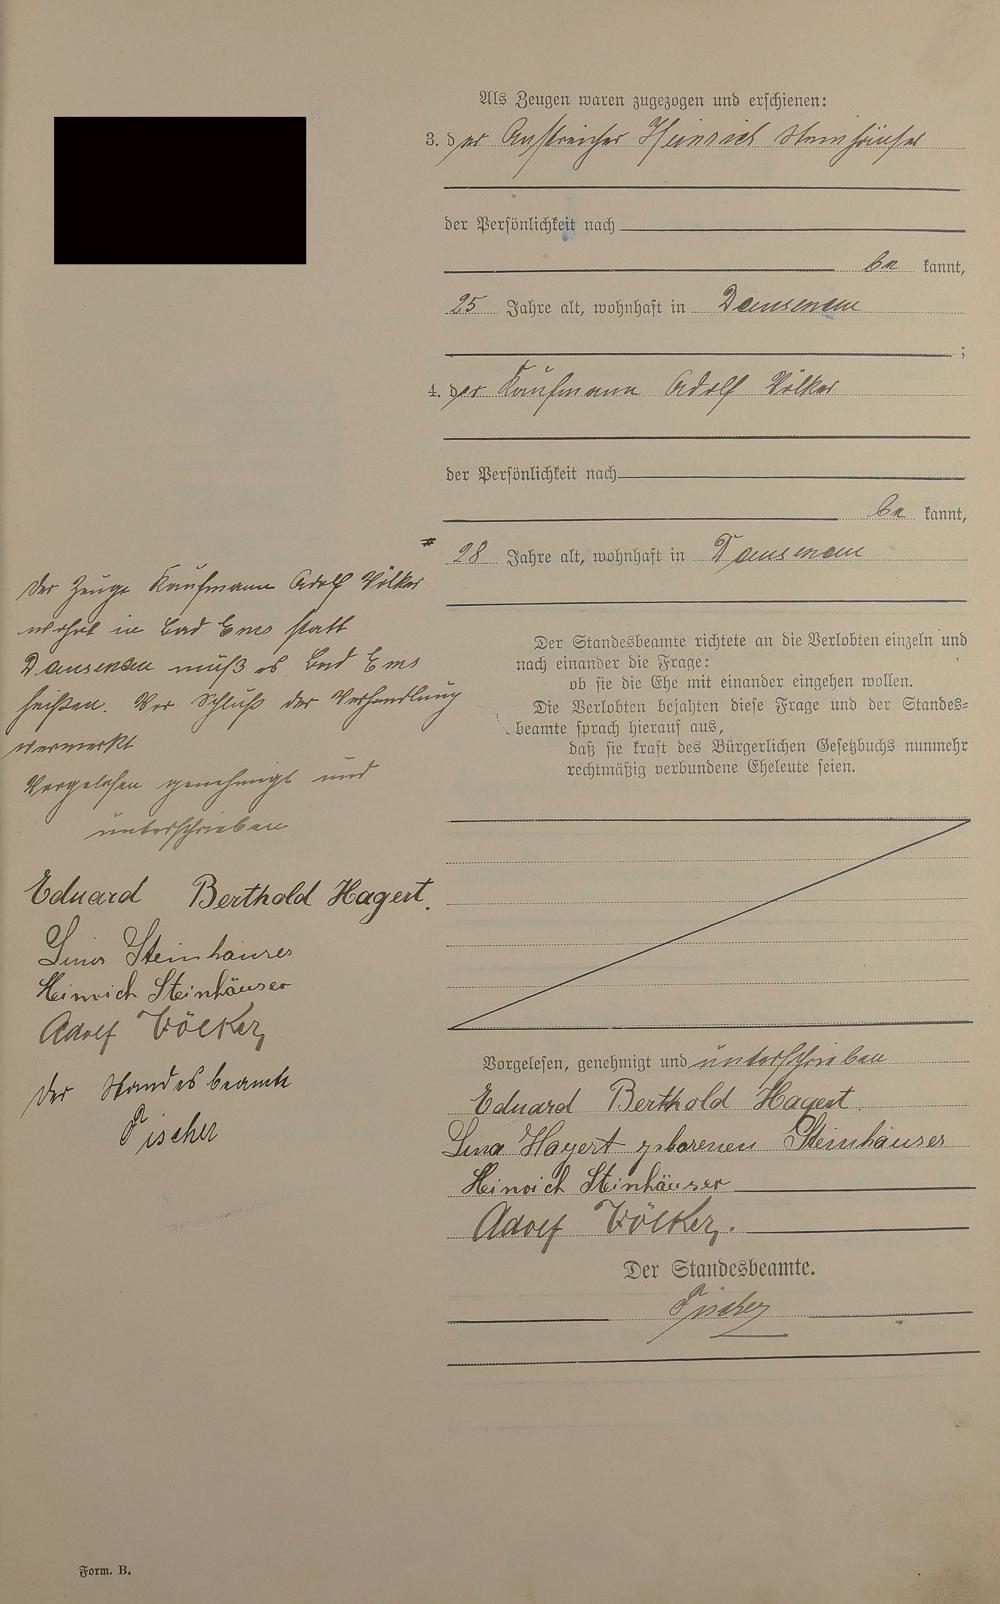 Als Zeugen waren zugezogen und erschienen:
3. der Anstreicher Heinrich Steinhäuser
der Persönlichkeit nach
be kannt,
25 Jahre alt, wohnhaft in Dausenau
;
4. der Kaufmann Adolf Völker
der Persönlichkeit nach
be kannt,
# 28 Jahre alt, wohnhaft in Dausenau
Der Zeuge Kaufmann Adolf Völker
wohnt in Bad Ems statt
Dausenau muß es Bad Ems
heißen. Vor Schluß der Verhandlung
vermerkt
Vorgelesen genehmigt und
unterschrieben
Eduard Berthold Hagert.
Lina Steinhäuser
Heinrich Steinhäuser
Adolf Völker
Der Standesbeamte
Fischer
Der Standesbeamte richtete an die Verlobten einzeln und
nach einander die Frage:
ob sie die Ehe mit einander eingehen wollen.
Die Verlobten bejahten diese Frage und der Standes-
beamte sprach hierauf aus,
daß sie kraft des Bürgerlichen Gesetzbuchs nunmehr
rechtmäßig verbundene Eheleute seien.
Vorgelesen, genehmigt und unterschrieben
Eduard Berthold Hagert
Lina Hagert geborenen Steinhäuser
Heinrich Steinhäuser
Adolf Völker.
Der Standesbeamte.
Fischer
Form. B.